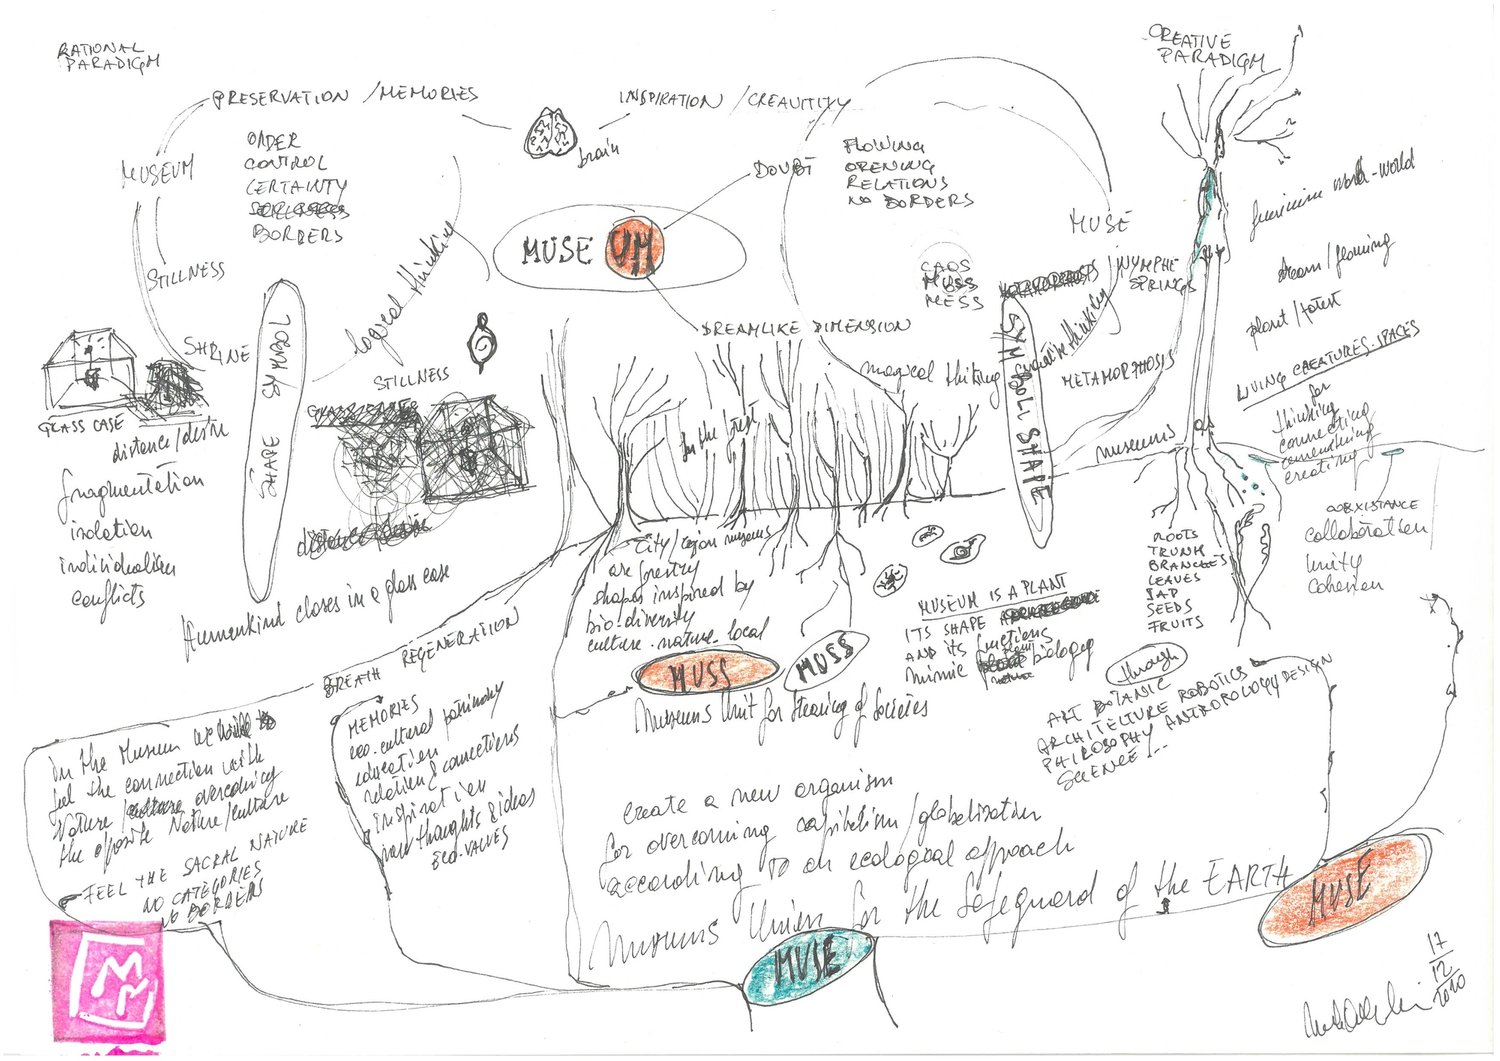 RATIONAL
PARADIGM
PRESERVATION / MEMORIES
MUSEUM
ORDER
CONTROL
CERTAINTY
BORDERS
STILLNESS
SHRINE
GLASS CASE
distance / desire
fragmentation
isolation
individualism
conflicts
SHAPE SYMBOL
logical thinking
STILLNESS
Humankind closes in a glass case
brain
INSPIRATION / CREAUTITY
MUSEUM
DOUBT
DREAMLIKE DIMENSION
FLOWING
OPENING
RELATIONS
NO BORDERS
CAOS
MUSS
MESS
MUSE
/ NYMPHE
SPRINGS
magical thinking
creative thinking
SYMBOL SHAPE
METAMORPHOSIS
museums
CREATIVE
PARADIGM
feminine world-world
dream /
plant / forest
LIVING CREATURES-SPACES
for
thinking
connecting
creating
COEXISTANCE
collaboration /
unity
cohesion
ROOTS
TRUNK
BRANCHES
LEAVES
SAP
SEEDS
FRUITS
in the forest
City / region museums
are forestry
shapes inspired by
bio-diversity
culture-nature-local
MUSEUM IS A PLANT
ITS SHAPE
AND its functions
mimic biology
through
ART BOTANIC
ARCHITECTURE ROBOTICS
PHILOSOPHY ANTROPOLOGY DESIGN
SCIENCE...
MUSS
MUSS
Museums Unit for Steaming of Societies
BREATH REGENERATION
In the Museum we
feel the connection with
Nature / culture overcoming
the opposite Nature/culture
FEEL THE SACRAL NATURE
NO CATEGORIES
NO BORDERS
MEMORIES
eco-cultural patrimony
education
relation & connections
inspiration
new thoughts & ideas
ECO-VALUES
create a new organism
for overcoming capitalism/globalisation
according to an ecological approach
Museums Union for the Safeguard of the EARTH
MUSE
MUSE
MM
17
12
2020